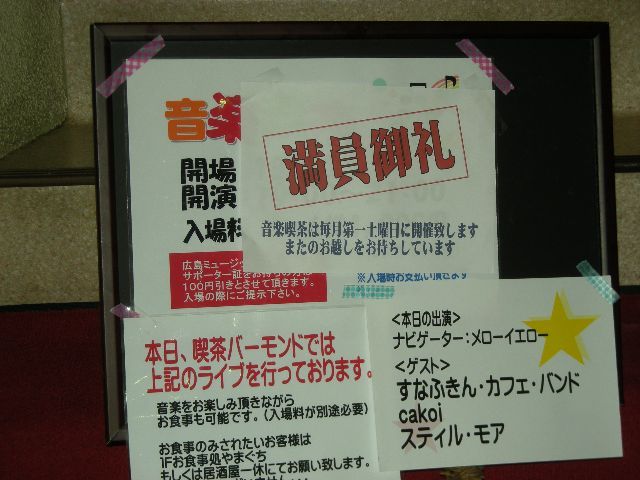 音楽
満員御礼
開場
開演
入場料
音楽喫茶は毎月第一土曜日に開催致します
またのお越しをお待ちしています
広島ミュージッ
サポーター証をお持ちの方は
100円引きとさせて頂きます。
入場の際にご提示下さい。
※入場時お支払い頂きます
本日、喫茶バーモンドでは
上記のライブを行っております。
音楽をお楽しみ頂きながら
お食事も可能です。(入場料が別途必要)
お食事のみされたいお客様は
1Fお食事処やまぐち
もしくは居酒屋一休にてお願い致します。
<本日の出演>
ナビゲーター:メローイエロー
<ゲスト>
すなふきん・カフェ・バンド
cakoi
スティル・モア